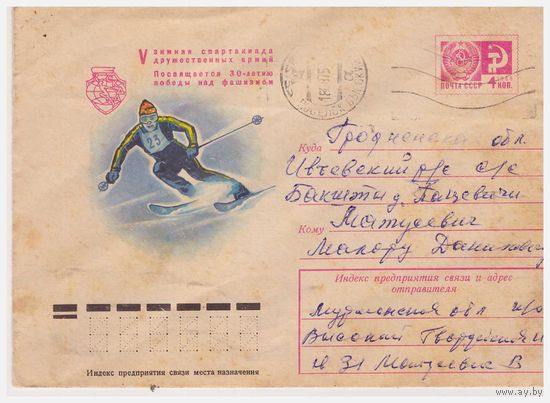 V зимняя спартакиада
дружественных армий
Посвящается 30-летию
победы над фашизмом
23
ПОЧТА СССР 4 КОП.
Куда Гродненская обл.
Ивьевский р/с с/с
Бакшты д.
Кому Матусевич
Индекс предприятия связи и адрес
отправителя
Мурманская обл
Высокий Гвардейская
31 В
Индекс предприятия связи места назначения
www.ay.by